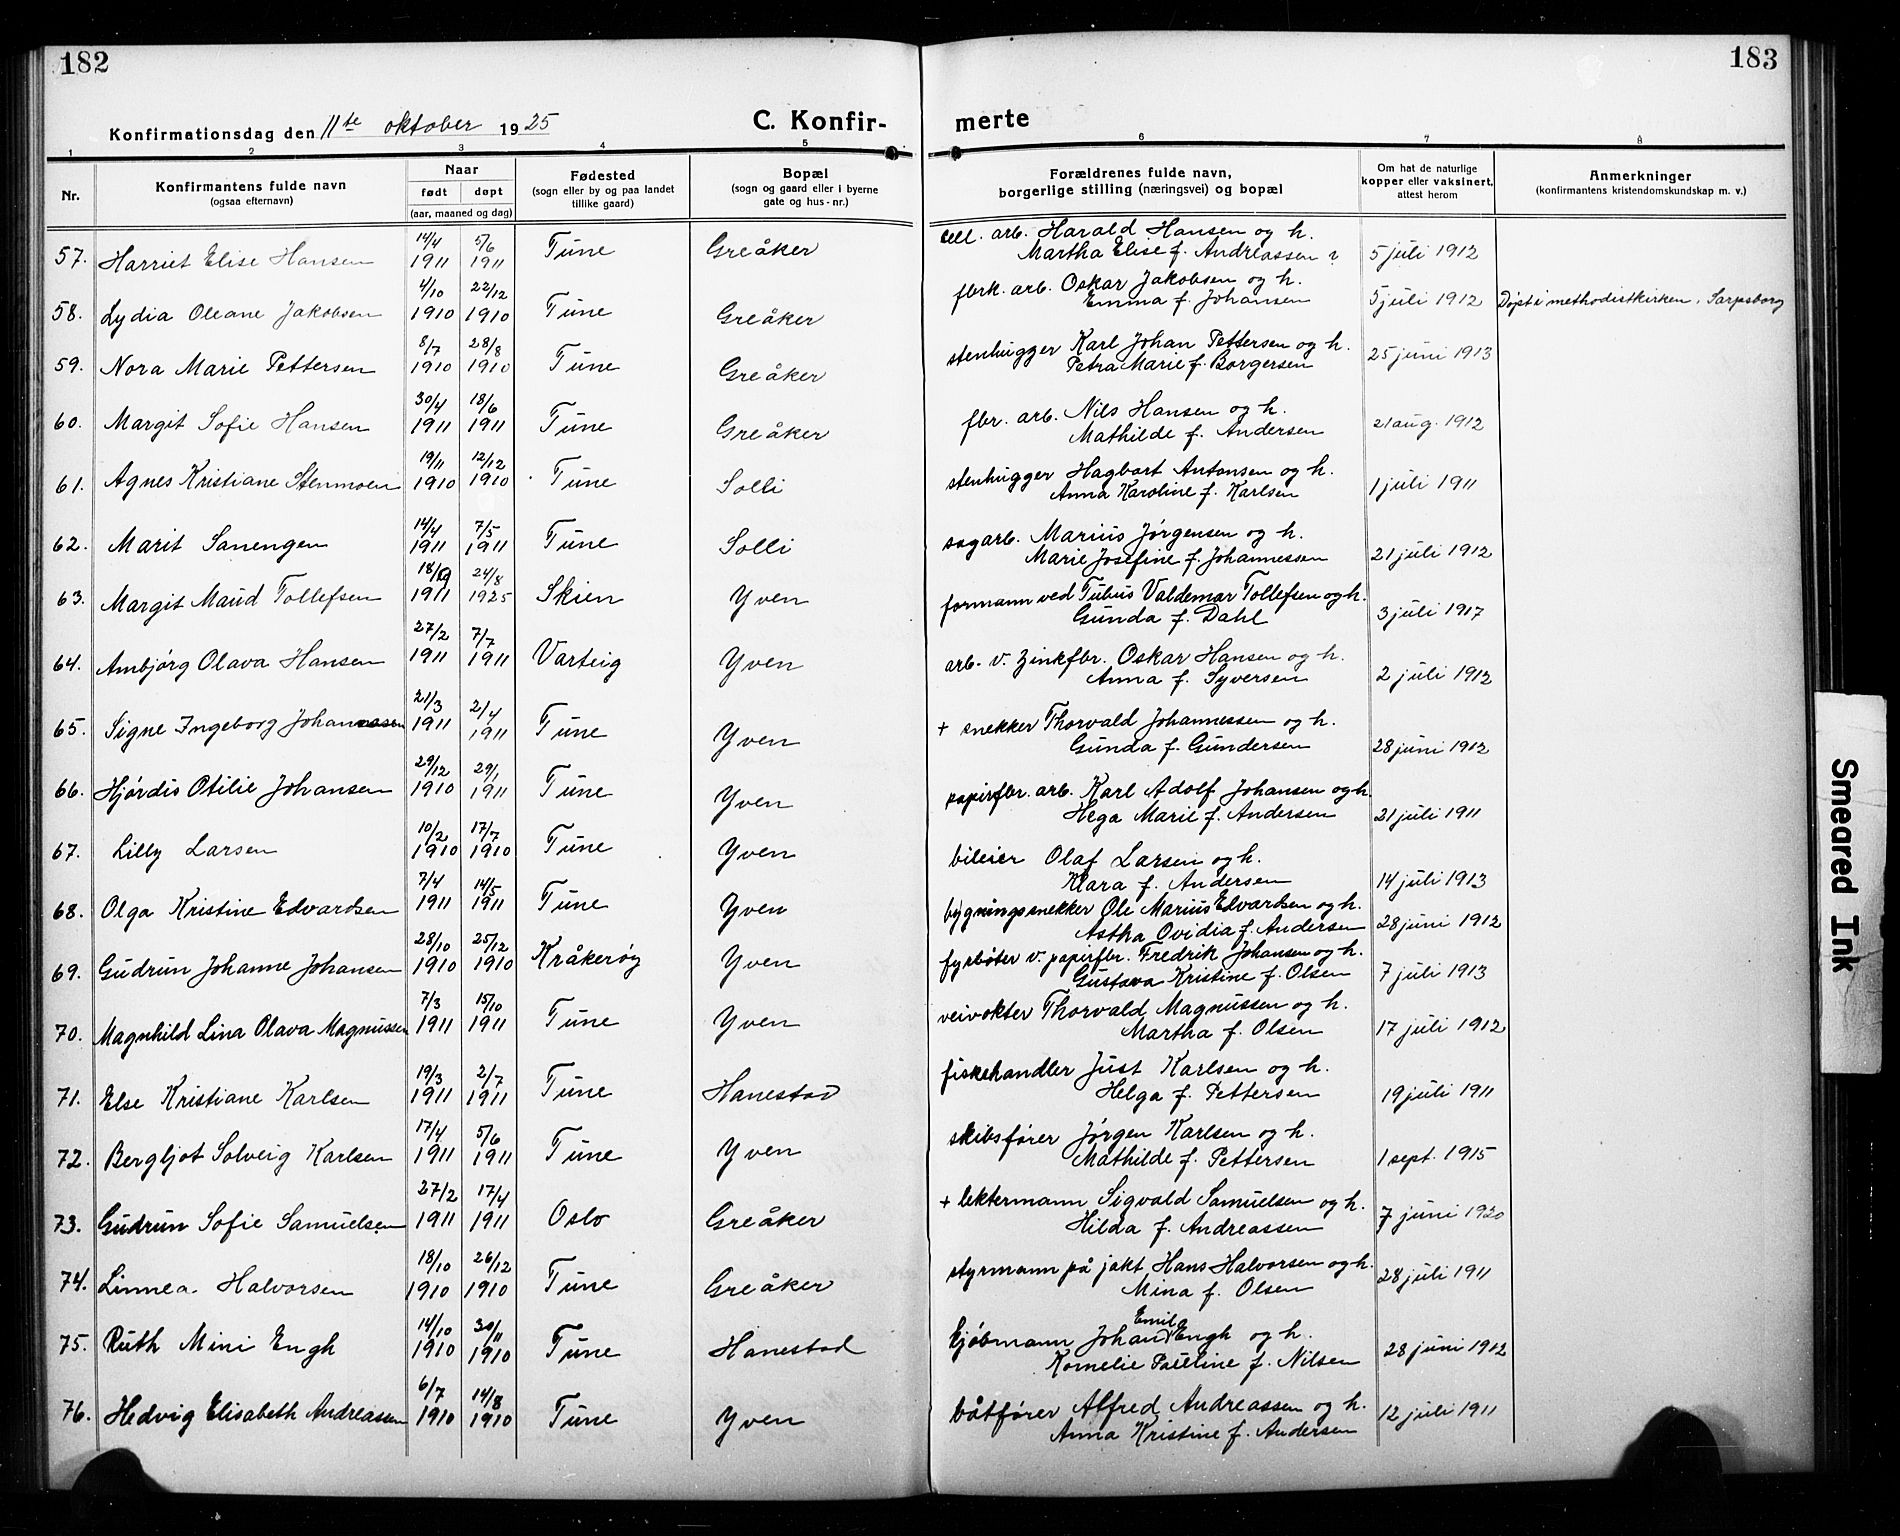 182
183
Konfirmationsdag den 11te oktober 1925
C. Konfir-
merte
1 2 3 4 5 6 7 8
Nr.
Konfirmantens fulde navn
(ogsaa efternavn)
Naar
født døpt
(aar, maaned og dag)
Fødested
(sogn eller by og paa landet
tillike gaard)
Bopæl
(sogn og gaard eller i byerne
gate og hus-nr.)
Forældrenes fulde navn,
borgerlige stilling (næringsvei) og bopæl
Om hat de naturlige
kopper eller vaksinert,
attest herom
Anmerkninger
(konfirmantens kristendomskundskap m. v.)
14/4 5/6 cell. arb. Harald Hansen og h.
57. Harriet Elise Hansen 1911 1911 Tune Greåker Martha Elise f. Andreassen 5 juli 1912
4/10 22/12 fbrk. arb. Oskar Jakobsen og h.
58. Lydia Oleane Jakobsen 1910 1910 Tune Greåker Emma f. Johansen 5 juli 1912 Døpt i methodistkirken, Sarpsborg
8/7 28/8 stenhugger Karl Johan Pettersen og h.
59. Nora Marie Pettersen 1910 1910 Tune Greåker Petra Marie f. Borgersen 25 juni 1913
30/4 18/6 fbr. arb. Nils Hansen og h.
60. Margit Sofie Hansen 1911 1911 Tune Greåker Mathilde f. Andersen 21 aug. 1912
19/11 12/12 stenhugger Hagbart Antonsen og h.
61. Agnes Kristiane Stenmoen 1910 1910 Tune Solli Anna Karoline f. Karlsen 1 juli 1911
14/4 7/5 sagarb. Marius Jørgensen og h.
62. Marit Sanengen 1911 1911 Tune Solli Marie Josefine f. Johannessen 21 juli 1912
24/8 formann ved Tubus Valdemar Tollefsen og h.
63. Margit Maud Tollefsen 1911 1925 Skien Yven Gunda f. Dahl 3 juli 1917
27/2 7/7 arb. v. Zinkfbr. Oskar Hansen og h.
64. Ambjørg Olava Hansen 1911 1911 Varteig Yven Anna f. Syversen 2 juli 1912
21/3 2/4 + snekker Thorvald Johannessen og h.
65. Signe Ingeborg Johannessen 1911 1911 Tune Yven Gunda f. Gundersen 28 juni 1912
29/12 29/1 papirfbr. arb. Karl Adolf Johansen og h.
66. Hjørdis Otilie Johansen 1910 1911 Tune Yven Hega Marie f. Andersen 21 juli 1911
10/2 17/7 bileier Olaf Larsen og h.
67. Lilly Larsen 1910 1910 Tune Yven Klara f. Andersen 14 juli 1913
7/4 14/5 bygningssnekker Ole Marius Edvardsen og h.
68. Olga Kristine Edvardsen 1911 1911 Tune Yven Astha Ovidia f. Andersen 28 juni 1912
28/10 25/12 fyrbøter v. papirfbr. Fredrik Johansen og h.
69. Gudrun Johanne Johansen 1910 1910 Kråkerøy Yven Gustava Kristine f. Olsen 7 juli 1913
7/3 15/10 veivokter Thorvald Magnussen og h.
70. Magnhild Lina Olava Magnussen 1911 1911 Tune Yven Martha f. Olsen 17 juli 1912
19/3 2/7 fiskehandler Just Karlsen og h.
71. Else Kristiane Karlsen 1911 1911 Tune Hanestad Helga f. Pettersen 19 juli 1911
17/4 5/6 skibsfører Jørgen Karlsen og h.
72. Bergljot Solveig Karlsen 1911 1911 Tune Yven Mathilde f. Pettersen 1 sept. 1915
27/2 17/4 + lektermann Sigvald Samuelsen og h.
73. Gudrun Sofie Samuelsen 1911 1911 Oslo Greåker Hilda f. Andreassen 7 juni 1920
18/10 26/12 styrmann på jakt Hans Halvorsen og h.
74. Linnea Halvorsen 1910 1910 Tune Greåker Mina f. Olsen 28 juli 1911
14/10 30/11 kjøbmann Johan Emil Engh og h.
75. Ruth Mini Engh 1910 1910 Tune Hanestad Kornelie Pauline f. Nilsen 28 juni 1912
6/7 14/8 båtfører Alfred Andreassen og h.
76. Hedvig Elisabeth Andreassen 1910 1910 Tune Yven Anna Kristine f. Andersen 12 juli 1911
Smeared Ink